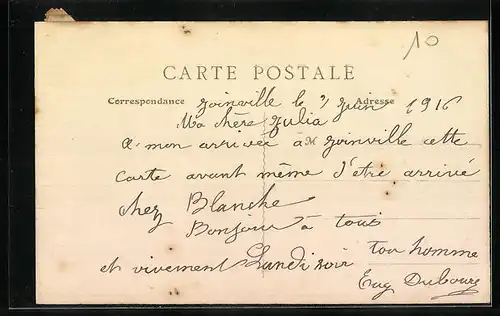 10
CARTE POSTALE
Correspondance Adresse
Joinville le Juin 1916
Ma chère Julia
A mon arrivée à M Joinville cette
carte avant même d'être arrivé
chez Blanche
Bonjour à tous
et vivement Lundi soir ton homme
Eug Dubourg